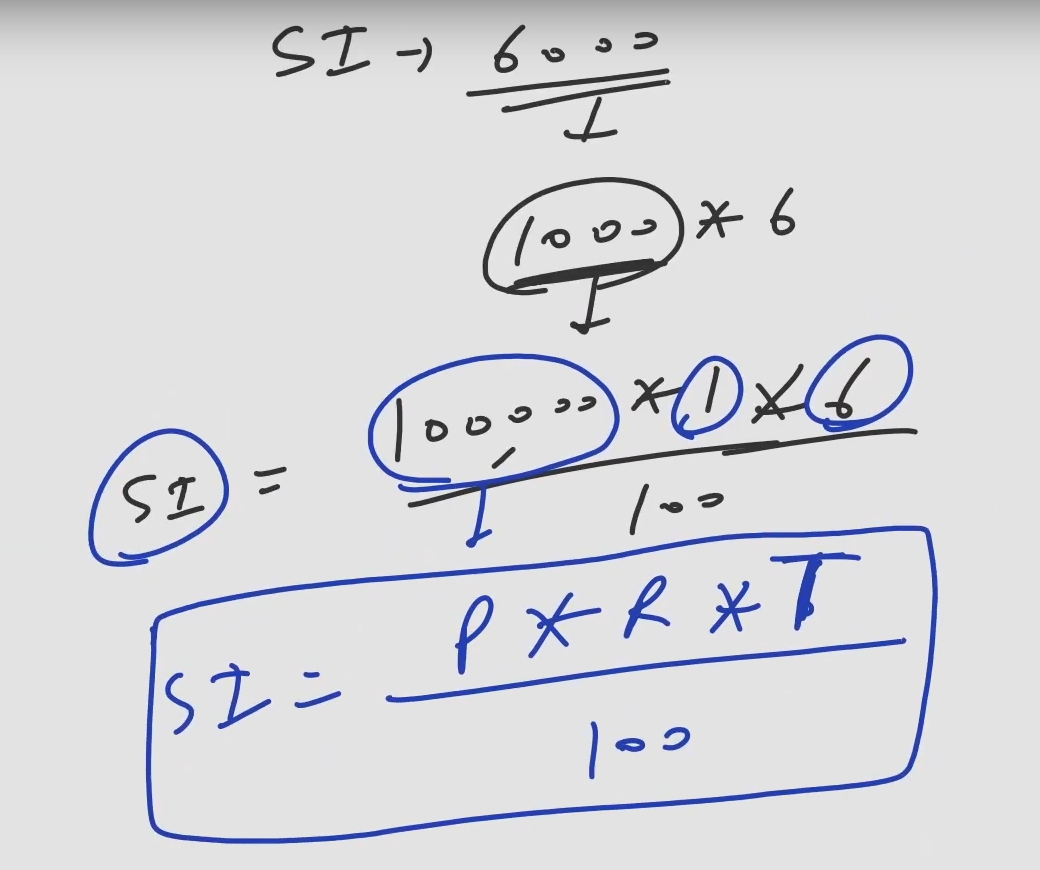 SI → 6000
1000 * 6
SI = 100000 * 1 * 6
100
SI = P * R * T
100